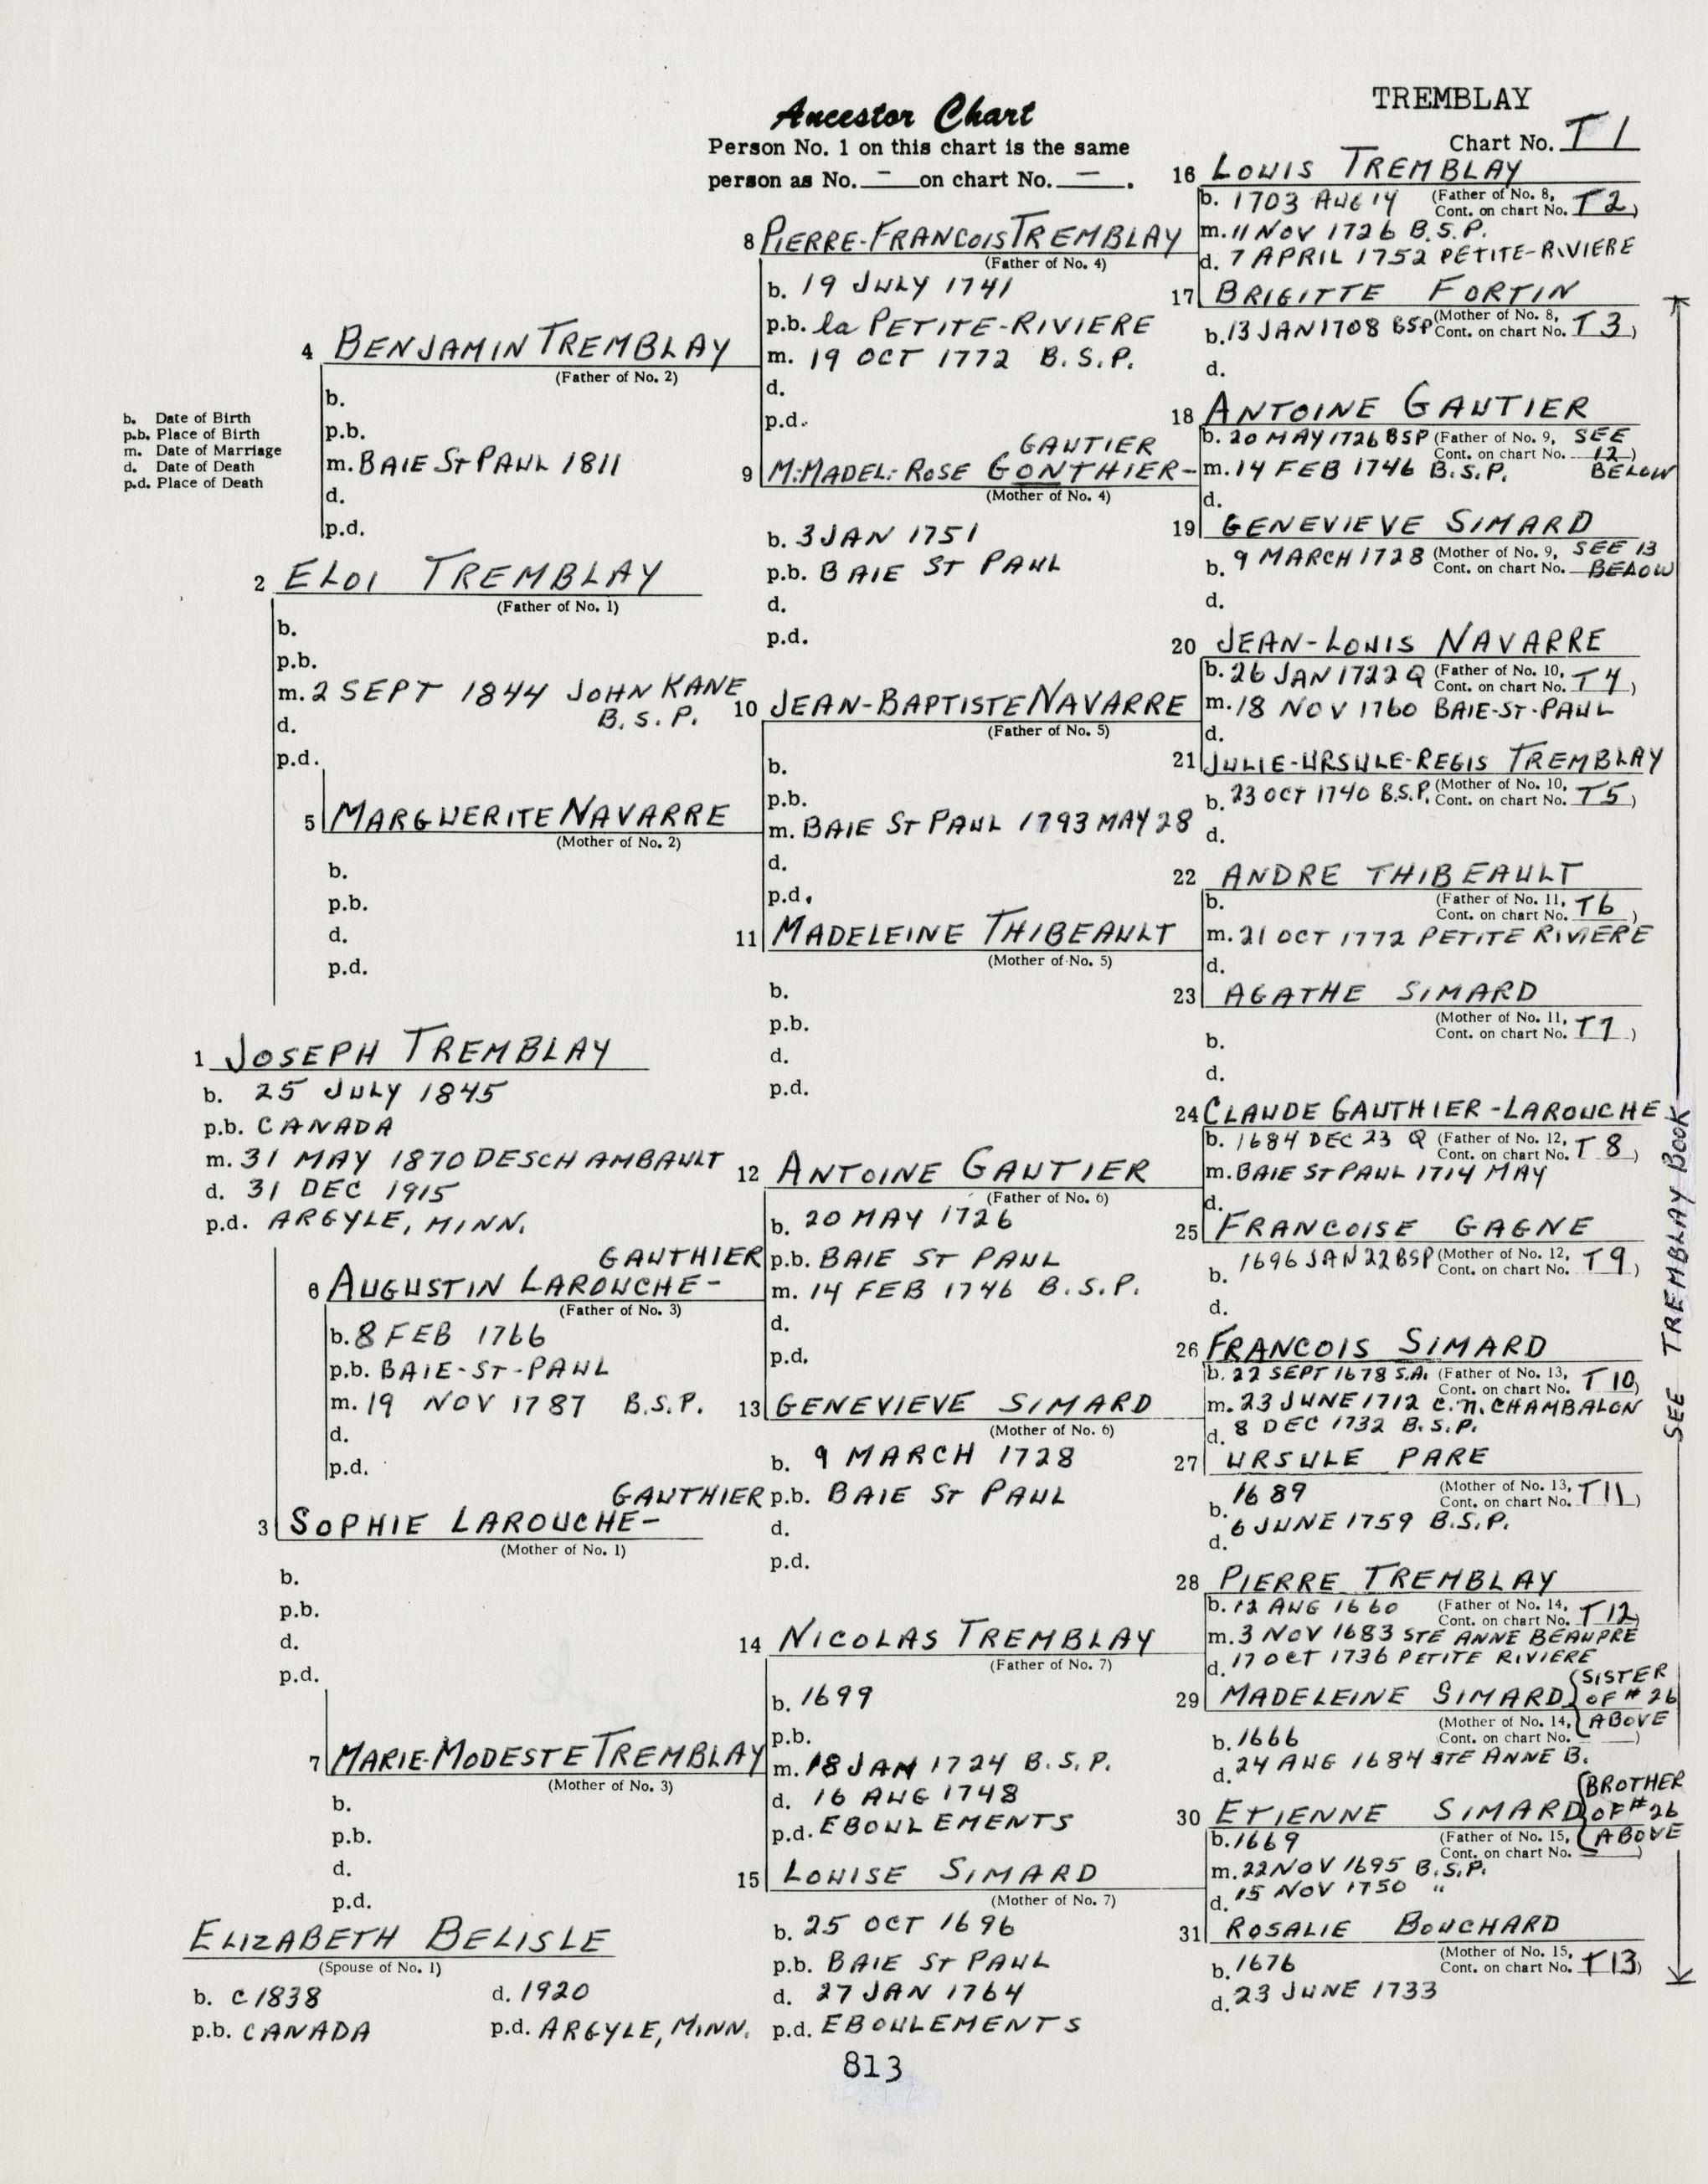 TREMBLAY
Ancestor Chart
Chart No. T1
Person No. 1 on this chart is the same
person as No. - on chart No. - .
b. Date of Birth
p.b. Place of Birth
m. Date of Marriage
d. Date of Death
p.d. Place of Death
1 JOSEPH TREMBLAY
b. 25 JULY 1845
p.b. CANADA
m. 31 MAY 1870 DESCHAMBAULT
d. 31 DEC 1915
p.d. ARGYLE, MINN.
ELIZABETH BELISLE
(Spouse of No. 1)
b. C 1838 d. 1920
p.b. CANADA p.d. ARGYLE, MINN.
2 ELOI TREMBLAY
(Father of No. 1)
b.
p.b.
m. 2 SEPT 1844 JOHN KANE
B.S.P.
d.
p.d.
GAUTHIER
3 SOPHIE LAROUCHE-
(Mother of No. 1)
b.
p.b.
d.
p.d.
4 BENJAMIN TREMBLAY
(Father of No. 2)
b.
p.b.
m. BAIE St PAUL 1811
d.
p.d.
5 MARGUERITE NAVARRE
(Mother of No. 2)
b.
p.b.
d.
p.d.
GAUTHIER
6 AUGUSTIN LAROUCHE-
(Father of No. 3)
b. 8 FEB 1766
p.b. BAIE-ST-PAUL
m. 19 NOV 1787 B.S.P.
d.
p.d.
7 MARIE-MODESTE TREMBLAY
(Mother of No. 3)
b.
p.b.
d.
p.d.
8 PIERRE-FRANCOIS TREMBLAY
(Father of No. 4)
b. 19 JULY 1741
p.b. la PETITE-RIVIERE
m. 19 OCT 1772 B.S.P.
d.
p.d.
GAUTIER
9 M:MADEL: ROSE GONTHIER-
(Mother of No. 4)
b. 3 JAN 1751
p.b. BAIE ST PAUL
d.
p.d.
10 JEAN-BAPTISTE NAVARRE
(Father of No. 5)
b.
p.b.
m. BAIE St PAUL 1793 MAY 28
d.
p.d.
11 MADELEINE THIBEAULT
(Mother of No. 5)
b.
p.b.
d.
p.d.
12 ANTOINE GAUTIER
(Father of No. 6)
b. 20 MAY 1726
p.b. BAIE ST PAUL
m. 14 FEB 1746 B.S.P.
d.
p.d.
13 GENEVIEVE SIMARD
(Mother of No. 6)
b. 9 MARCH 1728
p.b. BAIE St PAUL
d.
p.d.
14 NICOLAS TREMBLAY
(Father of No. 7)
b. 1699
p.b.
m. 18 JAN 1724 B.S.P.
d. 16 AUG 1748
p.d. EBOULEMENTS
15 LOUISE SIMARD
(Mother of No. 7)
b. 25 OCT 1696
p.b. BAIE St PAUL
d. 27 JAN 1764
p.d. EBOULEMENTS
16 LOUIS TREMBLAY
b. 1703 AUG 14 (Father of No. 8,
Cont. on chart No. T2)
m. 11 NOV 1726 B.S.P.
d. 7 APRIL 1752 PETITE-RIVIERE
17 BRIGITTE FORTIN
(Mother of No. 8,
b. 13 JAN 1708 BSP Cont. on chart No. T3)
d.
18 ANTOINE GAUTIER
b. 20 MAY 1726 BSP (Father of No. 9, SEE
Cont. on chart No. 12)
m. 14 FEB 1746 B.S.P. BELOW
d.
19 GENEVIEVE SIMARD
b. 9 MARCH 1728 (Mother of No. 9, SEE 13
Cont. on chart No. BELOW
d.
20 JEAN-LOUIS NAVARRE
b. 26 JAN 1722 Q (Father of No. 10,
Cont. on chart No. T4)
m. 18 NOV 1760 BAIE-ST-PAUL
d.
21 JULIE-URSULE-REGIS TREMBLAY
(Mother of No. 10,
b. 23 OCT 1740 B.S.P. Cont. on chart No. T5)
d.
22 ANDRE THIBEAULT
b. (Father of No. 11,
Cont. on chart No. T6)
m. 21 OCT 1772 PETITE RIVIERE
d.
23 AGATHE SIMARD
(Mother of No. 11,
Cont. on chart No. T7)
b.
d.
24 CLAUDE GAUTHIER-LAROUCHE
b. 1684 DEC 23 Q (Father of No. 12,
Cont. on chart No. T8)
m. BAIE St PAUL 1714 MAY
d.
25 FRANCOISE GAGNE
b. 1696 JAN 22 BSP (Mother of No. 12,
Cont. on chart No. T9)
d.
26 FRANCOIS SIMARD
b. 22 SEPT 1678 S.A. (Father of No. 13,
Cont. on chart No. T10)
m. 23 JUNE 1712 C.N. CHAMBALON
d. 8 DEC 1732 B.S.P.
27 URSULE PARE
b. 1689 (Mother of No. 13,
Cont. on chart No. T11)
d. 6 JUNE 1759 B.S.P.
28 PIERRE TREMBLAY
b. 12 AUG 1660 (Father of No. 14,
Cont. on chart No. T12)
m. 3 NOV 1683 STE ANNE BEAUPRE
d. 17 OCT 1736 PETITE RIVIERE
29 MADELEINE SIMARD {SISTER
OF #26
ABOVE
(Mother of No. 14,
b. 1666 Cont. on chart No. - )
d. 24 AUG 1684 STE ANNE B.
30 ETIENNE SIMARD {BROTHER
OF #26
ABOVE
b. 1669 (Father of No. 15,
Cont. on chart No. - )
m. 22 NOV 1695 B.S.P.
d. 15 NOV 1750 "
31 ROSALIE BOUCHARD
(Mother of No. 15,
b. 1676 Cont. on chart No. T13)
d. 23 JUNE 1733
SEE TREMBLAY BOOK
813